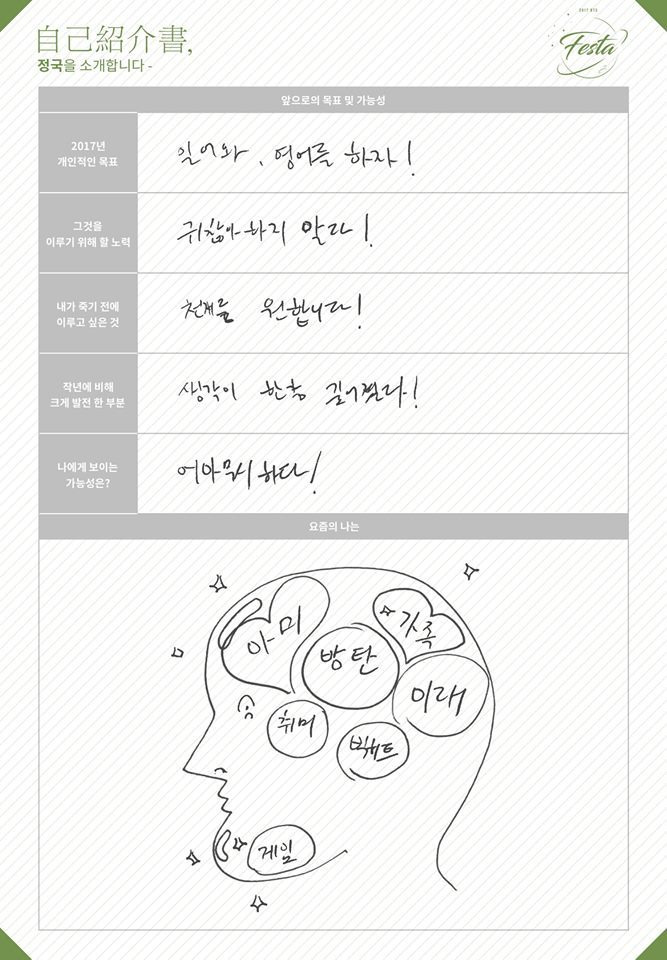 2017 BTS
Festa
自己紹介書,
정국을 소개합니다 -
앞으로의 목표 및 가능성
2017년
개인적인 목표
일어와, 영어를 하자!
그것을
이루기 위해 할 노력
귀찮아하지 말자!
내가 죽기 전에
이루고 싶은 것
원합니다!
작년에 비해
크게 발전 한 부분
생각이 한층 깊어졌다!
나에게 보이는
가능성은?
어마무시하다!
요즘의 나는
아미
가족
방탄
미래
취미
빅히트
게임